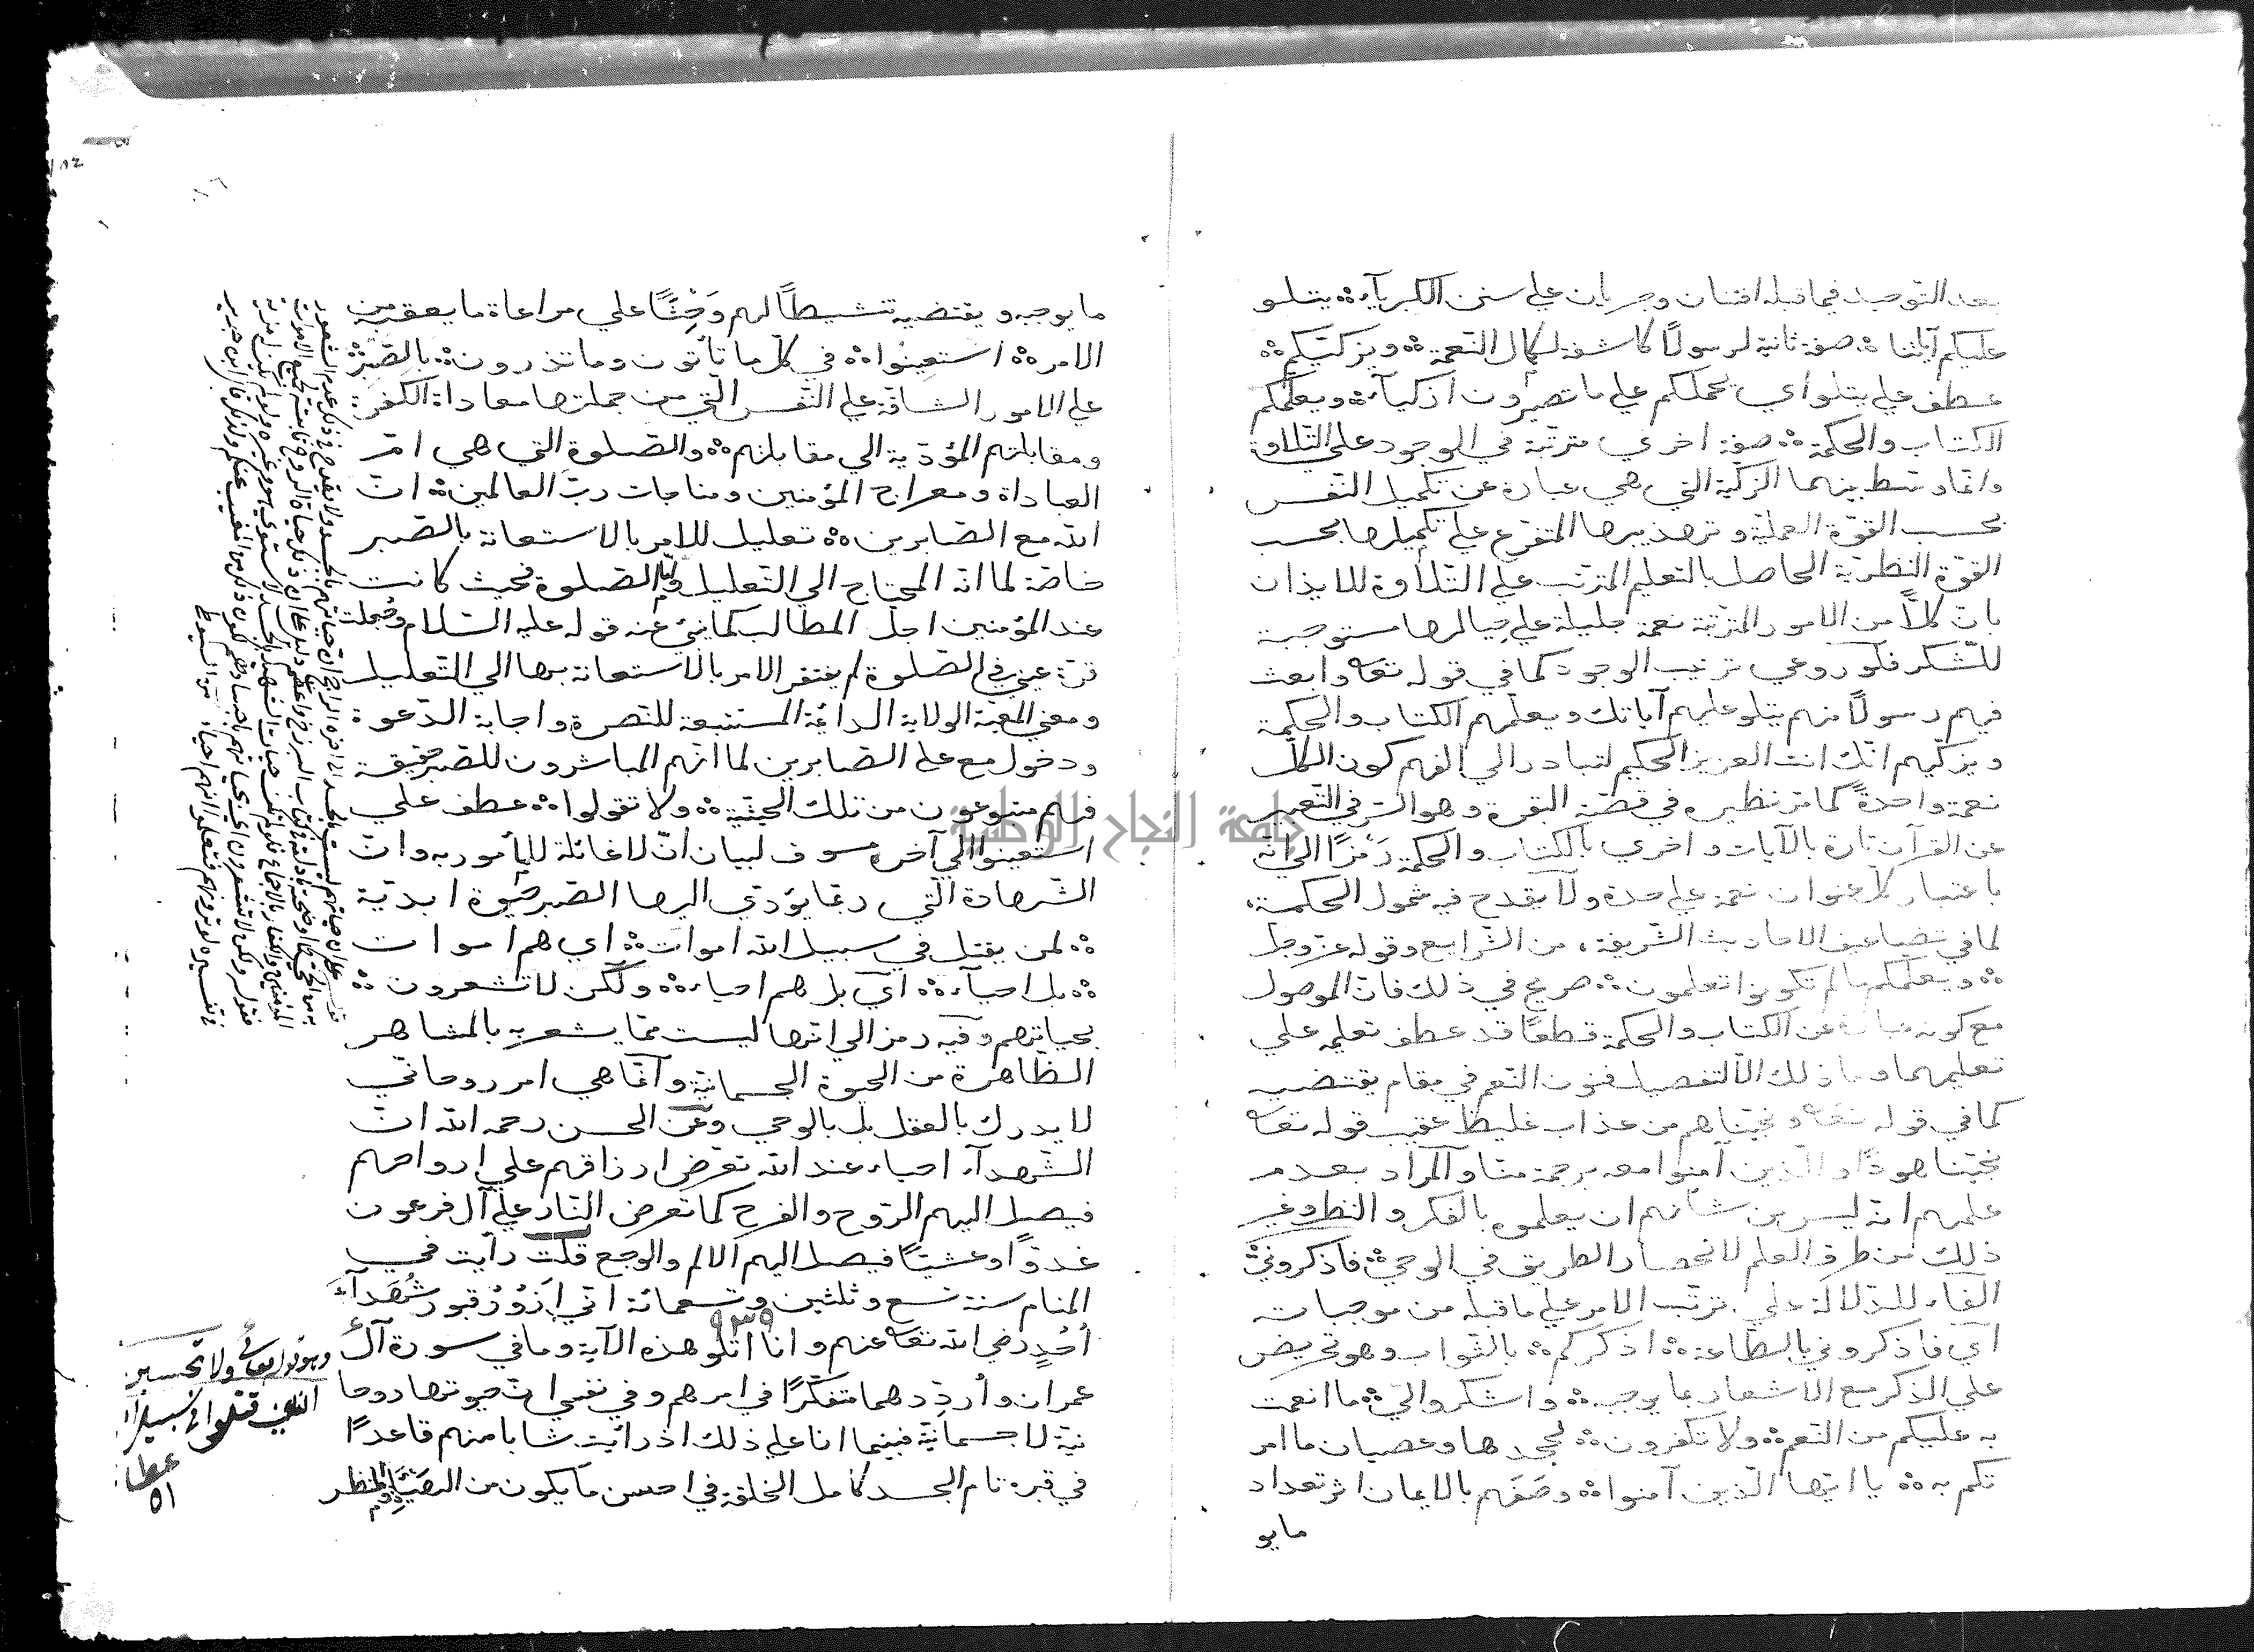 بعد التوحيد فيما قبله افتنان وجريان على سنن الكبرياء ۞ يتلو
عليكم آياتنا ۞ صفة ثانية لرسولاً كاشفة لكمال النعمة ۞ ويزكيكم ۞
عطف على يتلو اي يحملكم على ما تصيرون ازكياء ۞ ويعلمكم
الكتاب والحكمة ۞ صفة اخرى مترتبة في الوجود على التلاوة
وانما وسط بينهما التزكية التي هي عبارة عن تكميل النفس
بحسب القوة العملية وتهذيبها المتفرع على تكميلها بحسب
القوة النظرية الحاصل بالتعليم المترتب على التلاوة للايذان
بان كلاً من الامور المترتبة نعمة جليلة على حيالها مستوجبة
للشكر فلو روعي ترتيب الوجود كما في قوله تعا وابعث
فيهم رسولاً منهم يتلو عليهم آياتك ويعلمهم الكتاب والحكمة
ويزكيهم انك انت العزيز الحكيم لتبادر الي الفهم كون الكل
نعمة واحدةً كما مر نظيره في قصة البقرة وهو السر في التعبير
عن القرآن تارة بالآيات واخرى بالكتاب والحكمة رمزًا الي انه
باعتبار كل عنوان نعمة على حدة ولا يقدح فيه شمول الحكمة
لما في تضاعيف الاحاديث الشريفة من الشرايع وقوله عز وجل
۞ ويعلمكم ما لم تكونوا تعلمون ۞ صريح في ذلك فان الموصول
مع كونه عبارة عن الكتاب والحكمة قطعًا قد عطف تعليمه على
تعليمهما وما ذلك الا لتفصيل فنون النعم في مقام يقتضيه
كما في قوله تعا ونجيناهم من عذاب غليظ عقيب قوله تعا
نجينا هودًا والذين آمنوا معه برحمة منا والمراد بعدم
علمهم انه ليس من شأنهم ان يعلموه بالفكر والنظر وغير
ذلك من طرق العلم لانحصار الطريق في الوحي ۞ فاذكروني ۞
الفاء للدلالة على ترتب الامر على ما قبله من موجبات
اي فاذكروني بالطاعة ۞ اذكركم ۞ بالثواب وهو تحريض
على الذكر مع الاشعار بما يوجبه ۞ واشكروا لي ۞ ما انعمت
به عليكم من النعم ۞ ولا تكفرون ۞ بجحدها وعصيان ما امر
تكم به ۞ يا ايها الذين آمنوا ۞ وصفهم بالايمان اثر تعداد
مايو
ما يوجبه ويقتضيه تنشيطًا لهم وحثًا على مراعاة ما يعقبه من
الامر ۞ استعينوا ۞ في كل ما تأتون وما تذرون ۞ بالصبر ۞
على الامور الشاقة على النفس التي من جملتها معاداة الكفرة
ومقابلتهم المؤدية الي مقاتلتهم ۞ والصلوة التي هي ام
العباداة ومعراج المؤمنين ومناجات رب العالمين ۞ ان
الله مع الصابرين ۞ تعليل للامر بالاستعانة بالصبر
خاصة لما انه المحتاج الي التعليل واما الصلوة فحيث كانت
عند المؤمنين اجل المطالب كما ينبئ عنه قوله عليه السلام وجعلت
قرة عيني في الصلوة لم يفتقر الامر بالاستعانة بها الي التعليل
ومعنى المعية الولاية الدائمة المستتبعة للنصرة واجابة الدعوة
ودخول مع على الصابرين لما انهم المباشرون للصبر حقيقة
فهم متبوعون من تلك الحيثية ۞ ولا تقولوا ۞ عطف على
استعينوا الي آخره مسوق لبيان ان لا غائلة للمأمور به وان
الشهادة التي ربما يؤدي اليها الصبر حيوة ابدية
۞ لمن يقتل في سبيل الله اموات ۞ اي هم اموات
۞ بل احياء ۞ اي بل هم احياء ۞ ولكن لا تشعرون ۞
بحياتهم وفيه رمز الي انها ليست مما يشعر به بالمشاهر
الظاهرة من الحيوة الجسمانية وانما هي امر روحاني
لا يدرك بالعقل بل بالوحي وعن الحسن رحمه الله ان
الشهداء احياء عند الله تعرض ارزاقهم على ارواحهم
فيصل اليهم الروح والفرح كما تعرض النار على آل فرعون
غدوًا وعشيًا فيصل اليهم الالم والوجع قلت رأيت في
المنام سنة تسع وثلثين وتسعمائة اني ازور قبور شهداء
٩٣٩
أحدٍ رضي الله تعا عنهم وانا اتلو هذه الآية وما في سورة آل
عمران وأرددهما متفكرًا في امرهم وفي نفسي ان حيوتها روحا
نية لا جسمانية فبينما انا على ذلك اذ رأيت شابا منهم قاعدًا
في قبره تام الجسد كامل الخلقة في احسن ما يكون من الهيئة والمنظر
وهو قوله تعالى ولا تحسبن
الذين قتلوا في سبيل الله
عطا
جامعة النجاح الوطنية